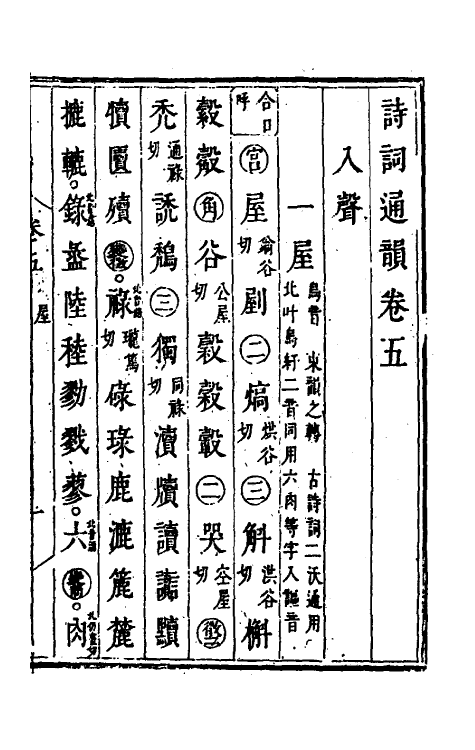 詩詞通韻卷五
入聲
一屋 烏音 東韻之轉 古詩詞二沃通用
北叶烏軒二音同用六肉等字入謳音
合口呼 宮 屋 翁谷切 剭 二 熇 烘谷切 三 斛 洪谷切 槲
縠 觳 角 谷 公屋切 穀 榖 轂 二 哭 空屋切 徵
禿 通祿切 誘 鵚 三 獨 同祿切 瀆 牘 讀 讟 黷
犢 匵 殰 祿 瓏篤切 碌 琭 鹿 漉 簏 麓
摝 轆 錄 盝 陸 稑 勠 戮 蓼 六 肉
卷五 屋